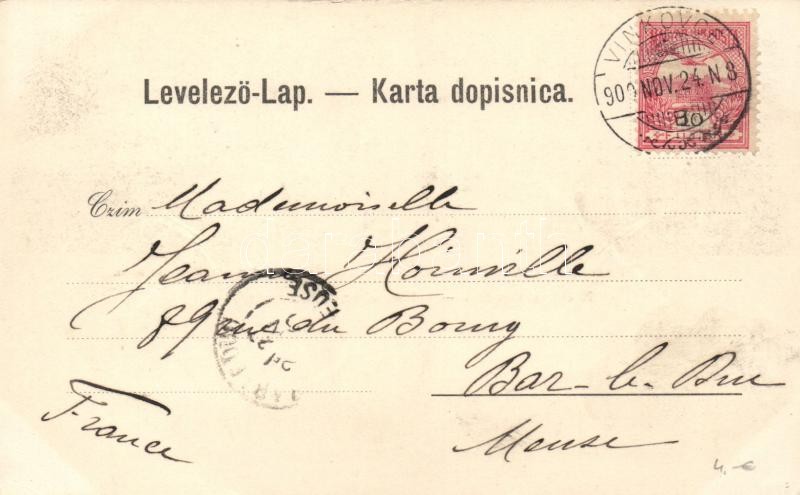 VINKOVCI
900 NOV. 24. N 8
Levelező-Lap. — Karta dopisnica.
Czim Mademoiselle
Jeanne Hoinville
89 rue du Bourg
Bar-le-Duc
Meuse
France
MEUSE
4.-€